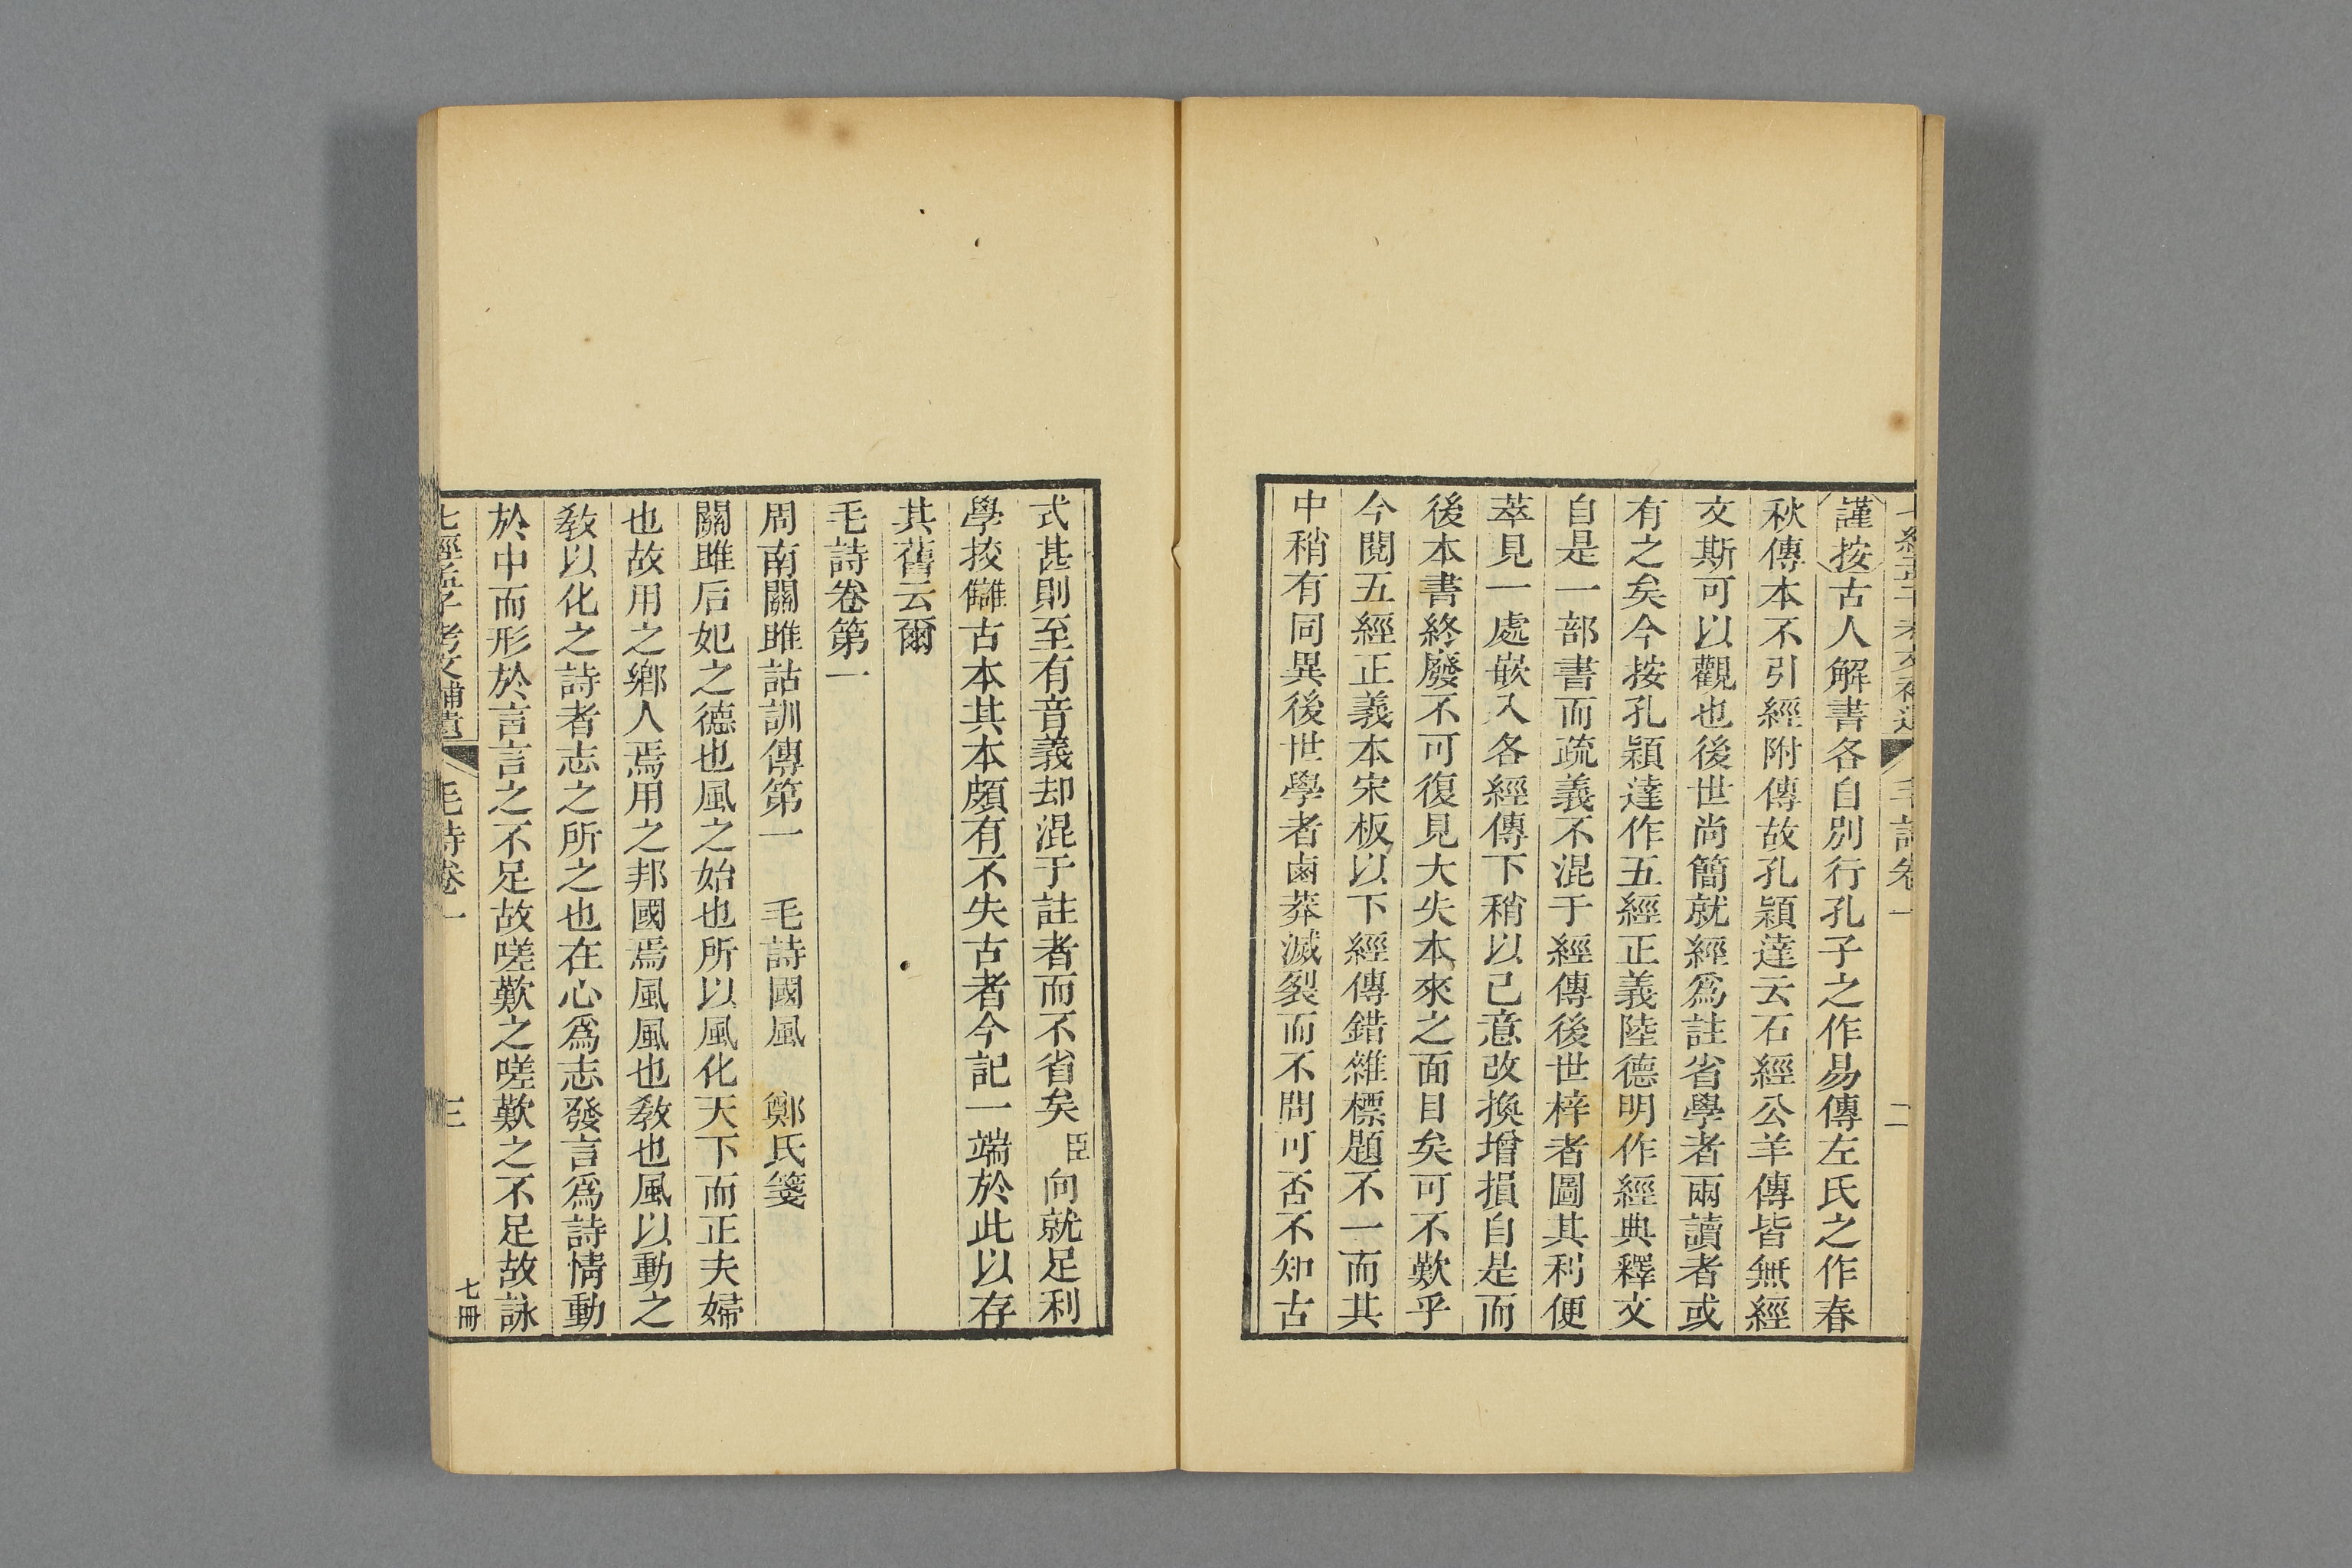 謹按古人解書各自別行孔子之作易傳左氏之作春
秋傳本不引經附傳故孔穎達云石經公羊傳皆無經
文斯可以觀也後世尚簡就經爲註省學者兩讀者或
有之矣今按孔穎達作五經正義陸德明作經典釋文
自是一部書而疏義不混于經傳後世梓者圖其利便
萃見一處嵌入各經傳下稍以己意改換增損自是而
後本書終廢不可復見大失本來之面目矣可不歎乎
今閱五經正義本宋板以下經傳錯雜標題不一而其
中稍有同異後世學者鹵莽滅裂而不問可否不知古
式甚則至有音義却混于註者而不省矣臣向就足利
學挍讎古本其本頗有不失古者今記一端於此以存
其舊云爾
毛詩卷第一
周南關雎詁訓傳第一 毛詩國風 鄭氏箋
關雎后妃之德也風之始也所以風化天下而正夫婦
也故用之鄉人焉用之邦國焉風風也教也風以動之
教以化之詩者志之所之也在心爲志發言爲詩情動
於中而形於言言之不足故嗟歎之嗟歎之不足故詠
七經孟子考文補遺 毛詩卷一 三 七冊